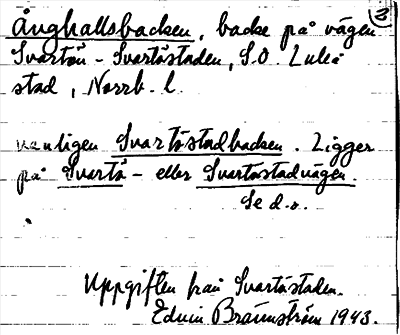 Ånghallsbacken, backe på vägen
Svartön - Svartöstaden, S.O. Luleå
stad, Norrb. l.
vanligen Svartöstadbacken. Ligger
på Svartö- eller Svartöstadvägen.
Se d.o.
Uppgiften från Svartöstaden.
Edvin Brännström 1943.